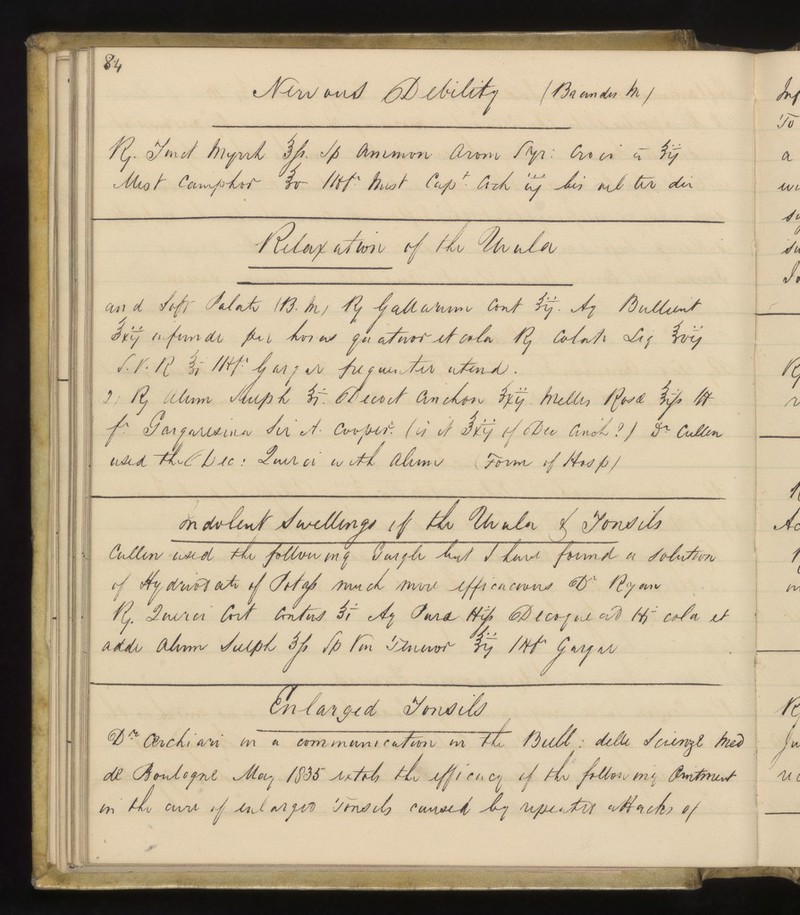 84
Nervous Debility (Brandes M)
Rx. Tinct Myrrh ʒſs. Sp Ammon Arom Syr: Croci a ʒij
Mist Camphor ℥v M ft Mist Capt. Coch iij bis vel ter die
Relaxation of the Uvula
and Soft Palate (B. M) Rx Gallarum Cont ʒij. Aq Bullient
℥xij infunde per horas quatuor et cola Rx Colati Liq ℥vij
S.V.R ℥i M ft Gargar frequenter utend.
2, Rx Alum Sulph ʒi. Decoct Cinchon ℥xij Mellis Rosæ ℥iſs M
ft Gargarisma Sir A. Cooper. (is it ℥xij of Dec Cinch?) Dr Cullen
used the Dec: Querci with Alum (Form of Hosp)
Indolent Swellings of the Uvula & Tonsils
Cullen used the following Gargle but I have found a solution
of Hydriodate of Potass much more efficacious Dr Ryan
Rx. Querci Cort Contus ℥i Aq Pura ℔iſs Decoque ad ℔j cola et
adde Alum Sulph ʒſs Sp Vin Tenuior ℥ij M ft Gargar
Enlarged Tonsils
Dr in a communication in the Bull: delle Scienze Med
de Boulogne May 1835 extols the efficacy of the following Ointment
in the cure of enlarged Tonsils caused by repeated attacks of